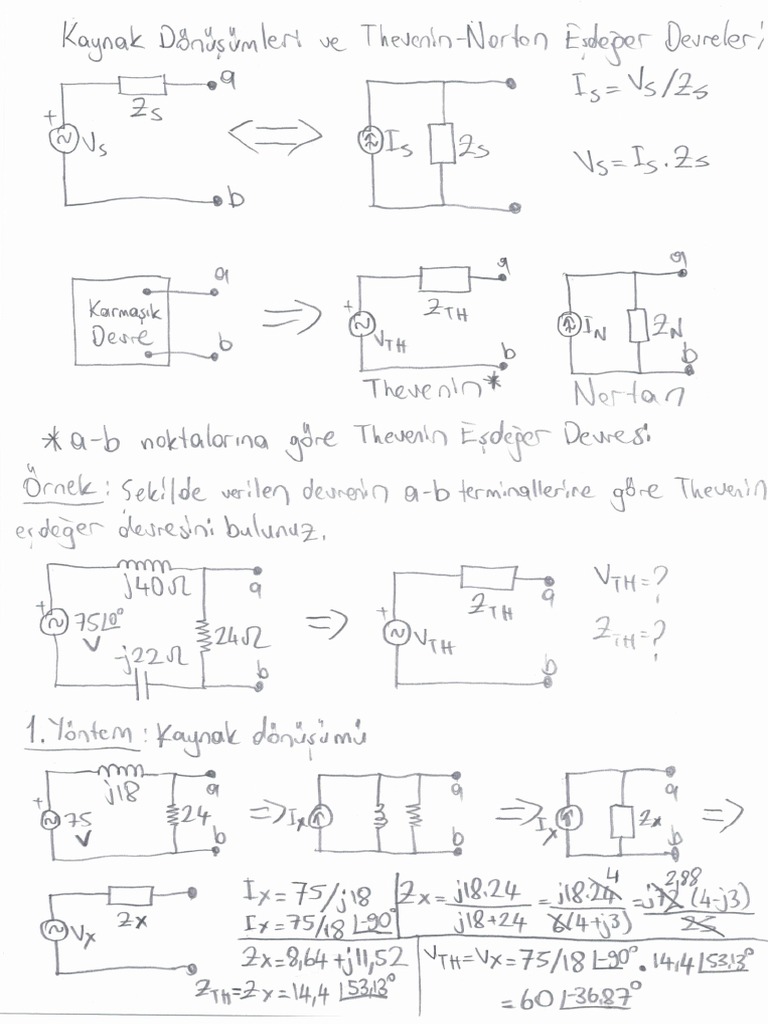 Kaynak Dönüşümleri ve Thevenin-Norton Eşdeğer Devreleri
a
Zs
+
Vs
b
Is
Zs
Is = Vs/Zs
Vs = Is.Zs
Karmaşık
Devre
a
b
a
ZTH
+
VTH
b
Thevenin*
a
IN
ZN
b
Nortan
* a-b noktalarına göre Thevenin Eşdeğer Devresi
Örnek: Şekilde verilen devrenin a-b terminallerine göre Thevenin
eşdeğer devresini bulunuz.
j40Ω
a
+
75∠0°
V
24Ω
-j22Ω
b
a
ZTH
+
VTH
b
VTH=?
ZTH=?
1. Yöntem: Kaynak dönüşümü
j18
a
+
75
V
24
b
⇒
Ix
a
b
⇒
Ix
Zx
a
b
⇒
+
Vx
Zx
Ix = 75/j18
Ix = 75/18∠-90°
Zx = j18.24 / j18+24 = j18.24 4 / 6(4+j3) = j72 2,88 (4-j3) / 25
Zx = 8,64 + j11,52
ZTH = Zx = 14,4∠53,13°
VTH = Vx = 75/18∠-90° . 14,4∠53,13°
= 60∠-36,87°